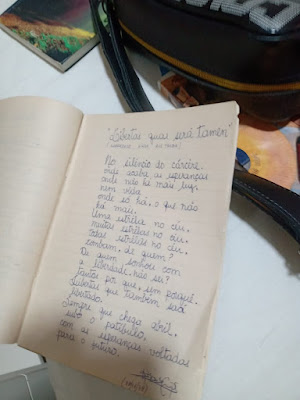 "Libertas quas será tamen"
No silêncio do cárcere,
onde acaba as esperanças
onde não há mais,
nem vida
onde só há, o que não
há mais.
Uma estrela no céu.
muitas estrelas no céu.
todas estrelas no céu.
zombam, de quem?
De quem sonhou com
a liberdade, não sei?
Juntos por que, sem porquê.
Libertas que também será
libertado.
Sempre que chega abril
são o patíbulo.
com as esperanças voltadas
para o futuro.